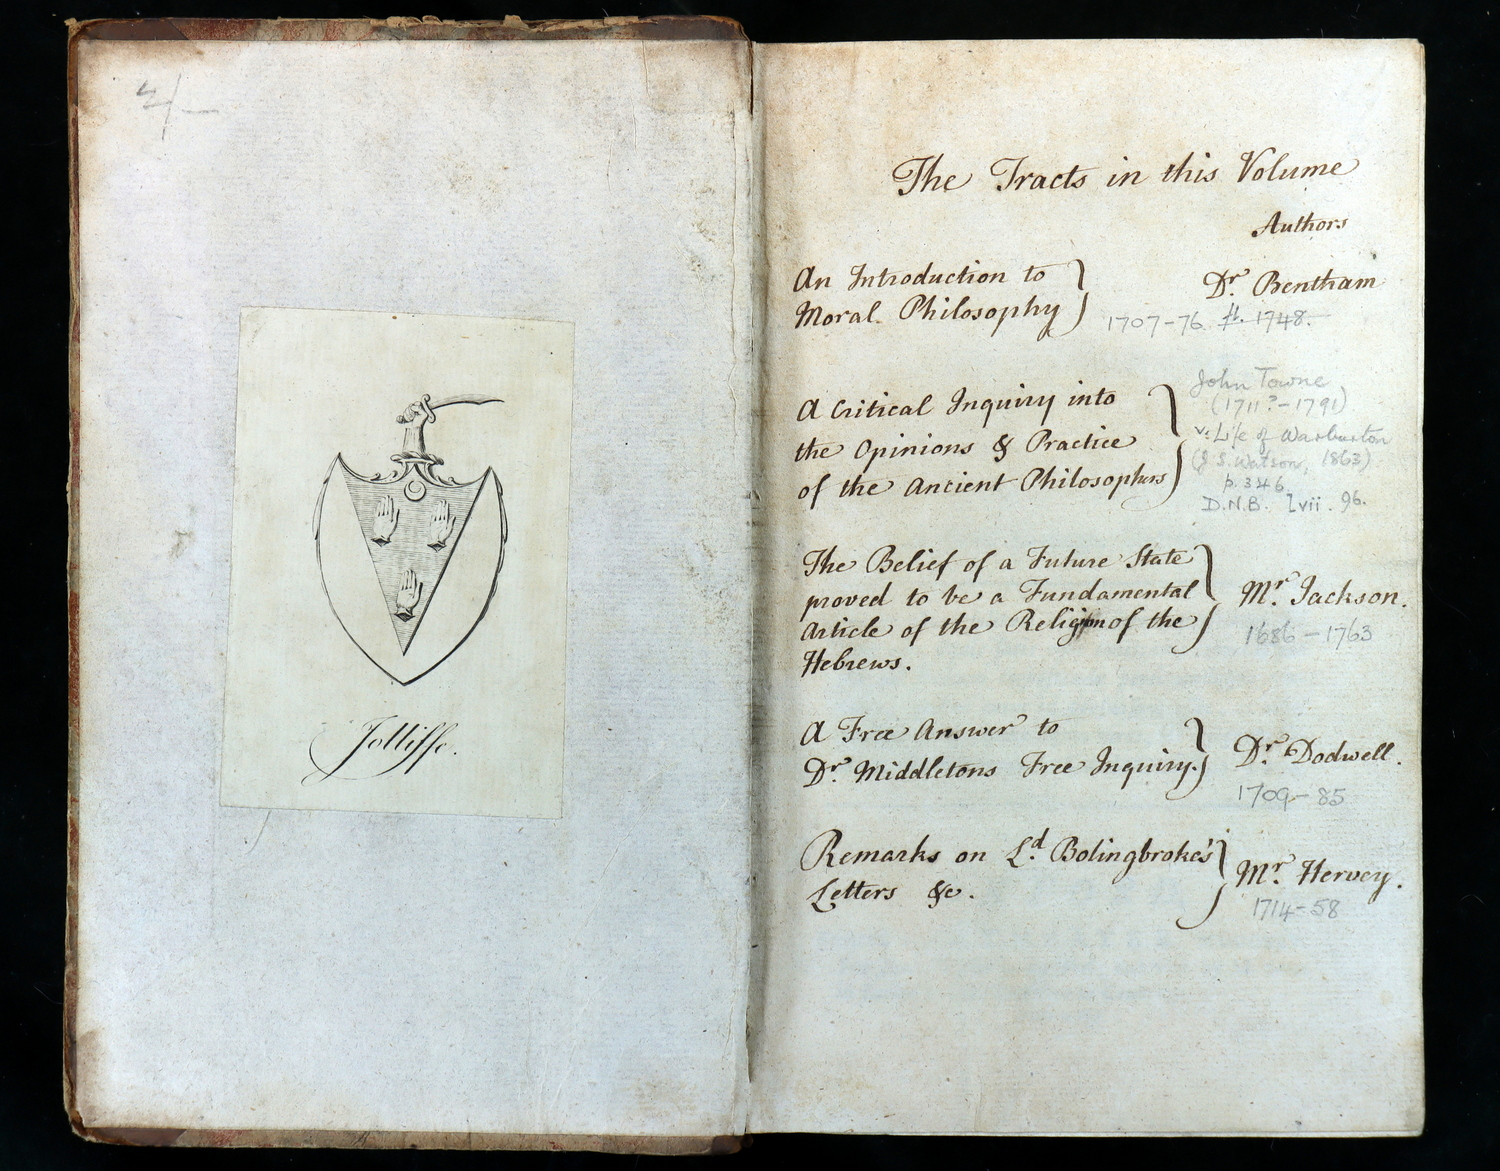 2/-
Jolliffe.
The Tracts in this Volume
Authors
An Introduction to
Moral Philosophy
Dr. Bentham
1707-76. fl. 1748.
A Critical Inquiry into
the Opinions & Practice
of the Ancient Philosophers
John Towne
(1711?-1791)
v. Life of Warburton
(J. S. Watson, 1863)
p. 346.
D.N.B. lvii. 96.
The Belief of a Future State
proved to be a Fundamental
Article of the Religion of the
Hebrews.
Mr. Jackson.
1686-1763
A Free Answer to
Dr. Middletons Free Inquiry.
Dr. Dodwell.
1709-85
Remarks on Ld. Bolingbroke's
Letters &c.
Mr. Hervey.
1714-58